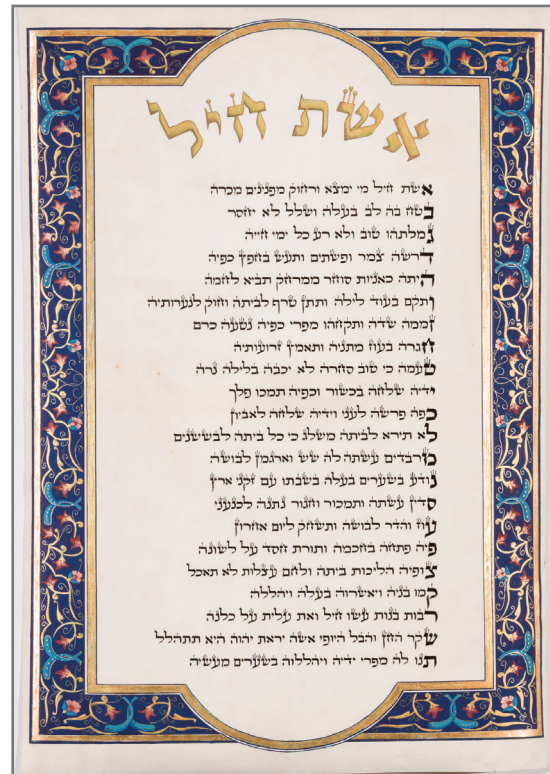 אשת חיל
אשת חיל מי ימצא ורחוק מפנינים מכרה
בטח בה לב בעלה ושלל לא יחסר
גמלתהו טוב ולא רע כל ימי חייה
דרשה צמר ופשתים ותעש בחפץ כפיה
היתה כאניות סוחר ממרחק תביא לחמה
ותקם בעוד לילה ותתן טרף לביתה וחוק לנערותיה
זממה שדה ותקחהו מפרי כפיה נטעה כרם
חגרה בעוז מתניה ותאמץ זרועותיה
טעמה כי טוב סחרה לא יכבה בלילה נרה
ידיה שלחה בכשור וכפיה תמכו פלך
כפה פרשה לעני וידיה שלחה לאביון
לא תירא לביתה משלג כי כל ביתה לבש שנים
מרבדים עשתה לה שש וארגמן לבושה
נודע בשערים בעלה בשבתו עם זקני ארץ
סדין עשתה ותמכור וחגור נתנה לכנעני
עוז והדר לבושה ותשחק ליום אחרון
פיה פתחה בחכמה ותורת חסד על לשונה
צופיה הליכות ביתה ולחם עצלות לא תאכל
קמו בניה ויאשרוה בעלה ויהללה
רבות בנות עשו חיל ואת עלית על כלנה
שקר החן והבל היופי אשה יראת יהוה היא תתהלל
תנו לה מפרי ידיה ויהללוה בשערים מעשיה